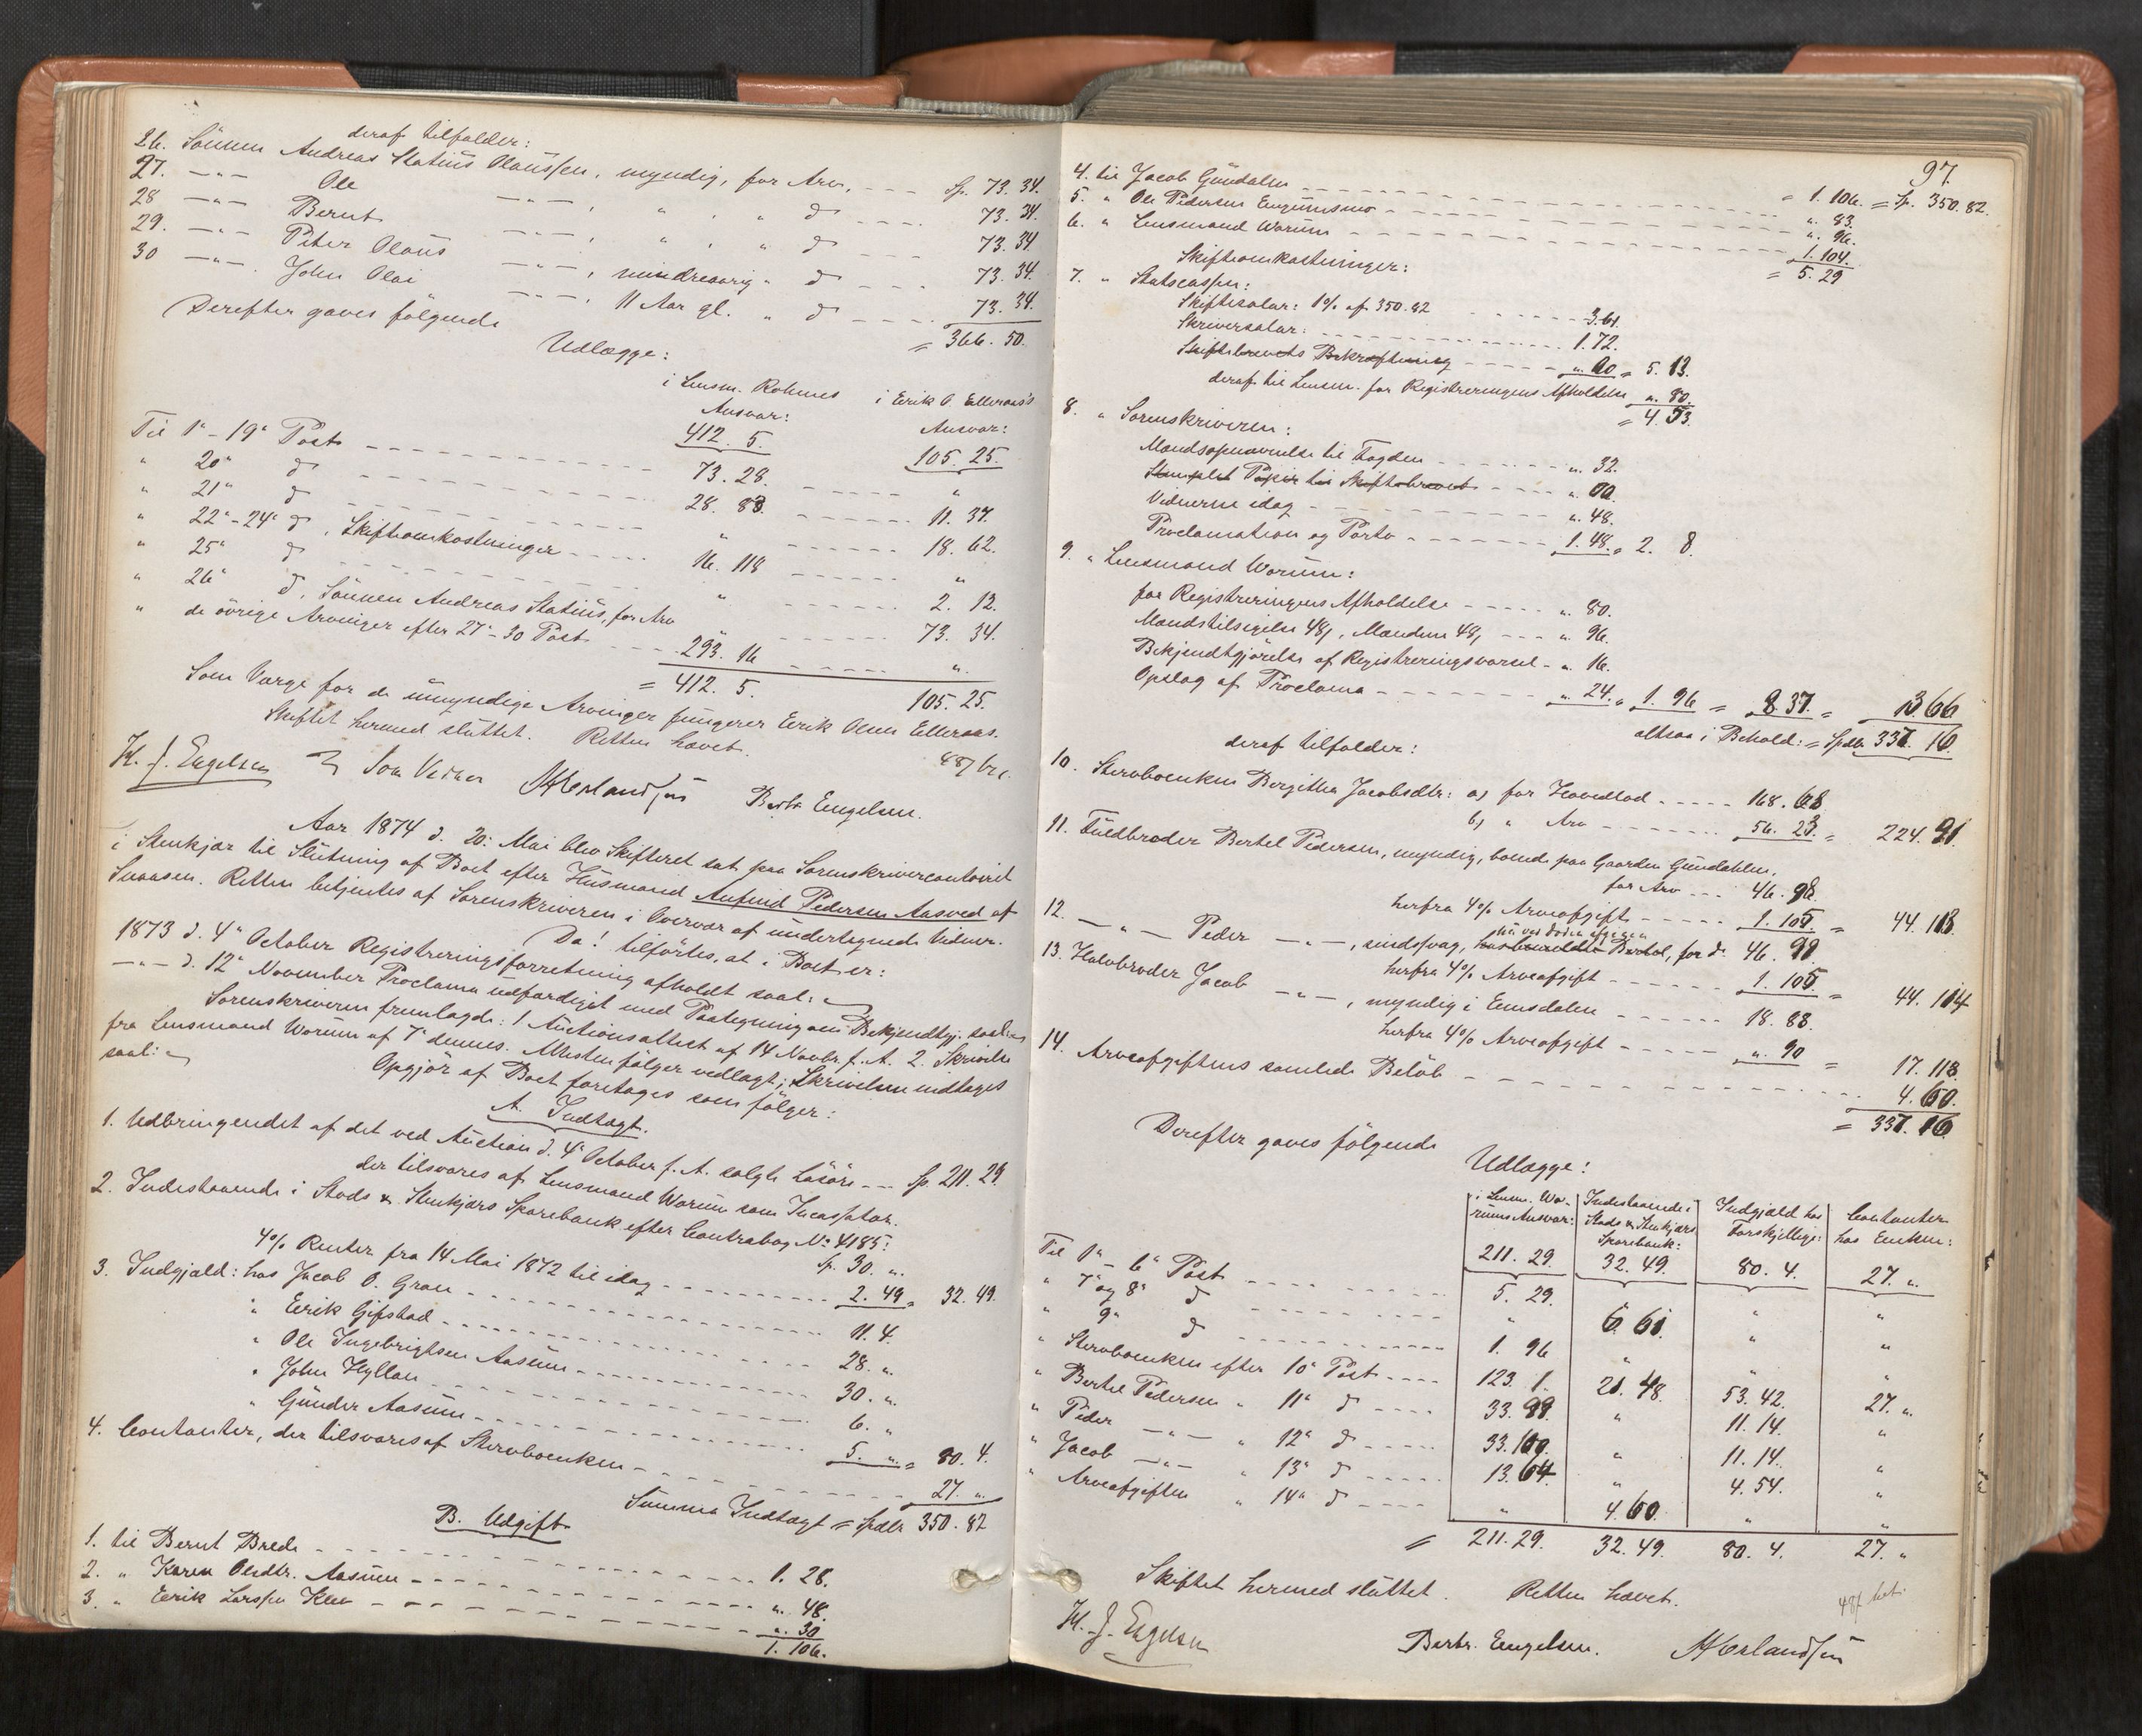 deraf tilfalder:
26. Sönnen Andreas Statius Olaussen, myndig, for Arv, --- Sp. 73. 34.
27. —"— Ole —"—, " , " d --- 73. 34.
28 —"— Bernt —"—, " , " d --- 73. 34.
29. —"— Peter Olaus —"—, mindreaarig " d --- 73. 34.
30 —"— John Olai —"—, 11 Aar gl. " d --- 73. 34.
= 366. 50.
Derefter gaves følgende
Udlægge:
i Lensm. Rohmes Ansvar: i Erik O. Elleraas's Ansvar:
412. 5. 105. 25.
Til 1ª - 19ª Post --- 73. 28. --- "
" 20ª d --- 28. 83. --- 11. 37.
" 21ª d --- " --- 18. 62.
" 22ª-24ª d, Skifteomkostninger --- 16. 118 --- "
" 25ª d --- " --- 2. 12.
" 26ª d, Sönnen Andreas Statius, for Arv " --- 73. 34.
" de övrige Arvinger efter 27ª-30 Post --- 293. 16 --- "
= 412. 5. 105. 25.
Som Værge for de umyndige Arvinger fungerer Erik Olsen Elleraas.
Skiftet hermed sluttet. Retten hævet.
H. J. Engelsen Som Vidner Berbr. Engelsen.
Aar 1874 d. 20. Mai blev Skifteret sat paa Sorenskrivercontoiret
i Stenkjær til Slutning af Boet efter Husmand Anfind Pedersen Aasved af
Snaasen. Retten betjentes af Sorenskriveren i Overvær af undertegnede Vidner.
Da! tilförtes, at i Boet er:
1873 d. 4ª October Registreringsforretning afholdt saal:
—"— d. 12ª November Proclama udfærdiget med Paategning om Bekjendtgj. saal:
Sorenskriveren fremlagde: 1 Auctionsattest af 14 Novbr f. A. 2. Skrivelse
fra Lensmand Worum af 7ª dennes. Attesten følger vedlagt; Skrivelsen indtages
saal:
Opgjör af Boet foretages som fölger:
A. Indtægt.
1. Udbringendet af det ved Auction d. 4ª October f. A. solgte Lösöre --- Sp. 211. 29.
der tilsvares af Lensmand Worum som Incassator.
2. Indestaaende i Stods & Stenkjærs Sparebank efter Contrabog No 4185:
Sp. 30. "
4% Renter fra 14 Mai 1872 til idag --- 2. 49 = 32. 49.
3. Indgjæld: hos Jacob O. Gran --- 11. 4.
" Erik Gifstad --- 28. "
" Ole Ingebrigtsen Aasum --- 30. "
" John Hyllan --- 6. "
" Gunder Aasum --- 5. " = 80. 4.
4. Contanter, der tilsvares af Stervboenken --- 27. "
Summa Indtægt = Spdlr 350. 82
B. Udgift
1. til Bernt Brede --- 1. 28.
2. " Karen Olsdtr. Aasum --- ". 48.
3. " Erik Larssen Klev --- ". 30
1. 106.
97.
4. til Jacob Gundalen --- = 1. 106. = Sp. 350. 82.
5. " Ole Pedersen --- ". 83.
6. " Lensmand Worum --- ". 96.
1. 104.
= 5. 29
Skifteomkostninger:
7. " Statscassen:
Skiftesalær: 1% af 350.82 --- 3.61.
Skriversalær: --- 1. 72.
Skiftebrevets Bekræftning --- = 5. 13.
deraf til Lensm. for Registreringens Afholdelse ". 80.
= 4. 53.
8. " Sorenskriveren:
Mandsopnævnelse til Fogden --- ". 32.
Stemplet Papir til Skiftebrevet ---
Vidnerne idag --- ". 48.
Proclamation og Porto --- 1. 48. = 2. 8.
9. " Lensmand Worum:
for Registreringens Afholdelse --- ". 80.
Mandstilsigelse 48ſ, Mændene 48ſ --- ". 96.
Bekjendtgjörelse af Registreringsvarsel - ". 16.
Opslag af Proclama --- ". 24. = 1. 96 = 8 37. = 13 66
altsaa i Behold: = Spdlr 337. 16
deraf tilfalder:
10. Stervboenken Bergitha Jacobsdtr: a) for Hovedlod --- 168. 68
b) " Arv --- 56. 23. = 224. 91.
11. Fuldbroder Bertel Pedersen, myndig, boende paa Gaarden Gundahlen,
for Arv --- 46. 98.
herfra 4% Arveafgift --- 1. 105 = 44. 113.
12. —"— Peder —"—, sindssvag, Bertel, for d. 46. 99.
herfra 4% Arveafgift --- 1. 105 = 44. 114
13. Halvbroder Jacob —"—, myndig i Eensdalen --- 18. 88.
herfra 4% Arveafgift --- ". 90 = 17. 118.
14. Arveafgiftens samlede Belöb --- 4. 60.
= 337. 16
Derefter gaves følgende
Udlægge:
i Lensm. Worums Ansvar: Indestaaende i Stods & Stenkjærs Sparebank: Indgjæld hos Forskjellige: Contanter hos Enken:
211. 29. 32. 49. 80. 4. 27. "
Til 1ª - 6ª Post --- 5. 29. " " "
" 7ª og 8ª d --- " 6. 61. " "
" 9ª d --- 1. 96 " " "
" Stervboenken efter 10ª Post --- 123. 1. 21. 48. 53. 42. 27. "
" Bertel Pedersen " 11ª d --- 33. 99. " 11. 14. "
" Peder —"— " 12ª d --- 33. 100. " 11. 14. "
" Jacob —"— " 13ª d --- 13. 64. " 4. 54. "
" Arveafgiften " 14ª d --- " 4. 60. " "
= 211. 29. 32. 49. 80. 4. 27. "
Skiftet hermed sluttet. Retten hævet.
H. J. Engelsen Berbr. Engelsen.